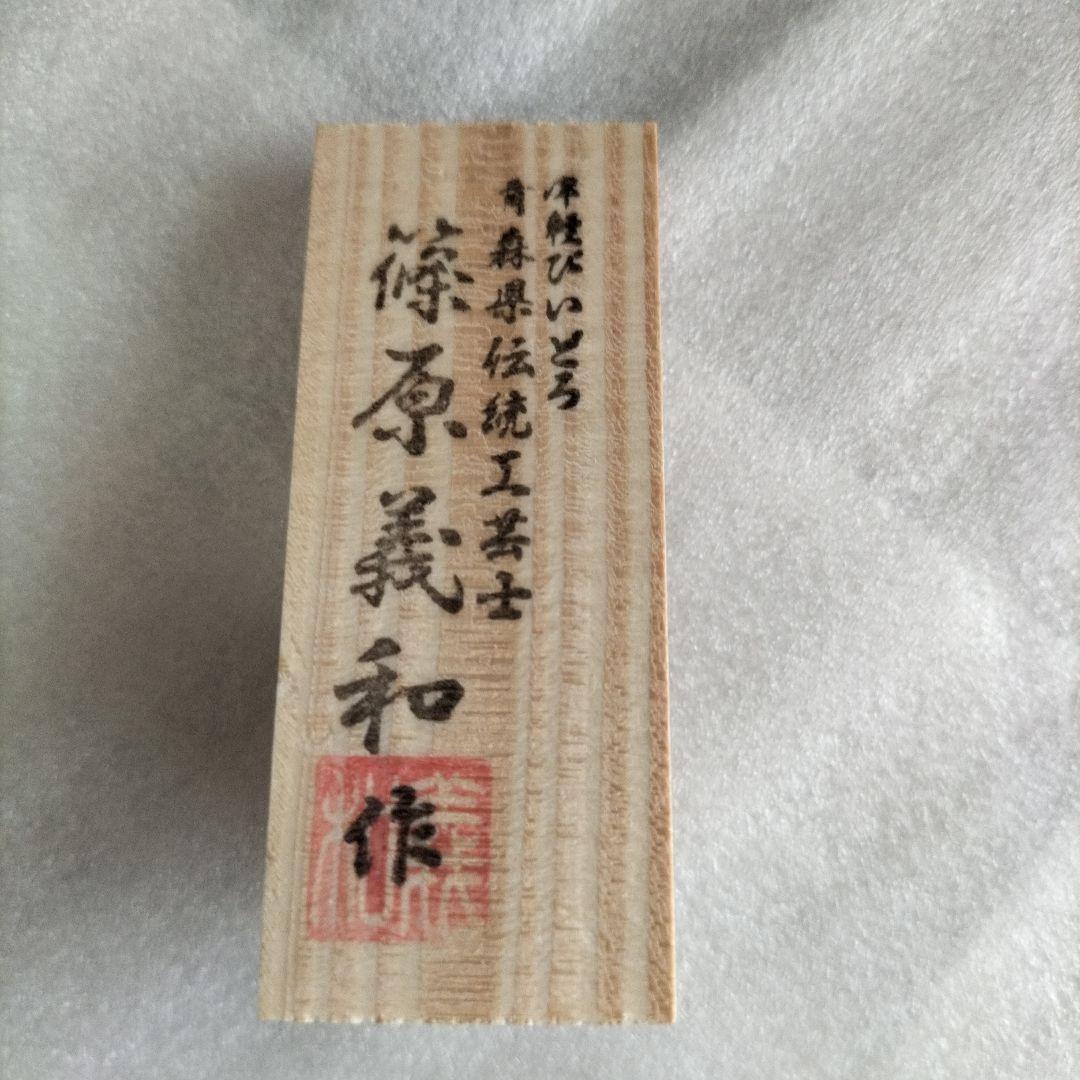 津軽びいどろ
青森県伝統工芸士
篠原義和
作
義和